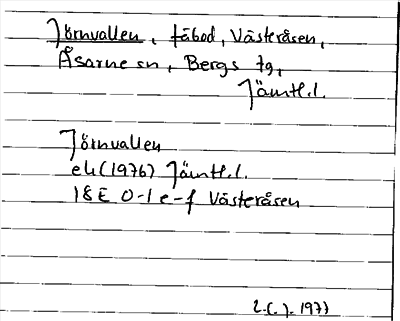 Jörnvallen, fäbod, Västeråsen,
Åsarne sn, Bergs tg,
Jämtl.l.
Jörnvallen
ek (1976) Jämtl.l.
18E 0-1 e-f Västeråsen
1977